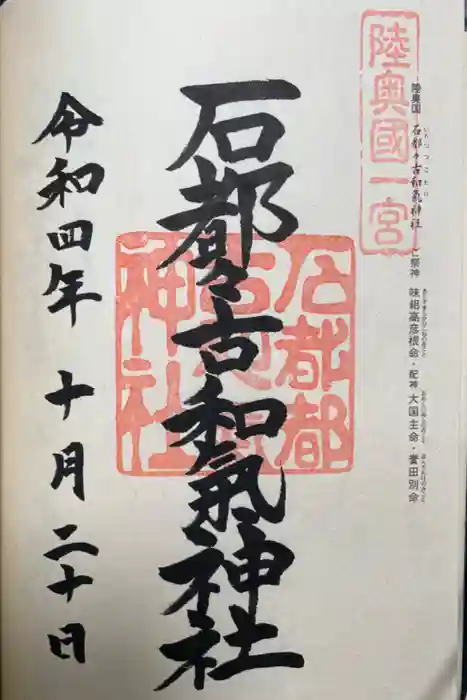 陸奥國一宮
陸奥国一宮 石都々古和氣神社 主祭神 味耜高彦根命・配神 大国主命・誉田別命
石都々古和氣神社
石都都
古和氣
神社
令和四年 十月二十日